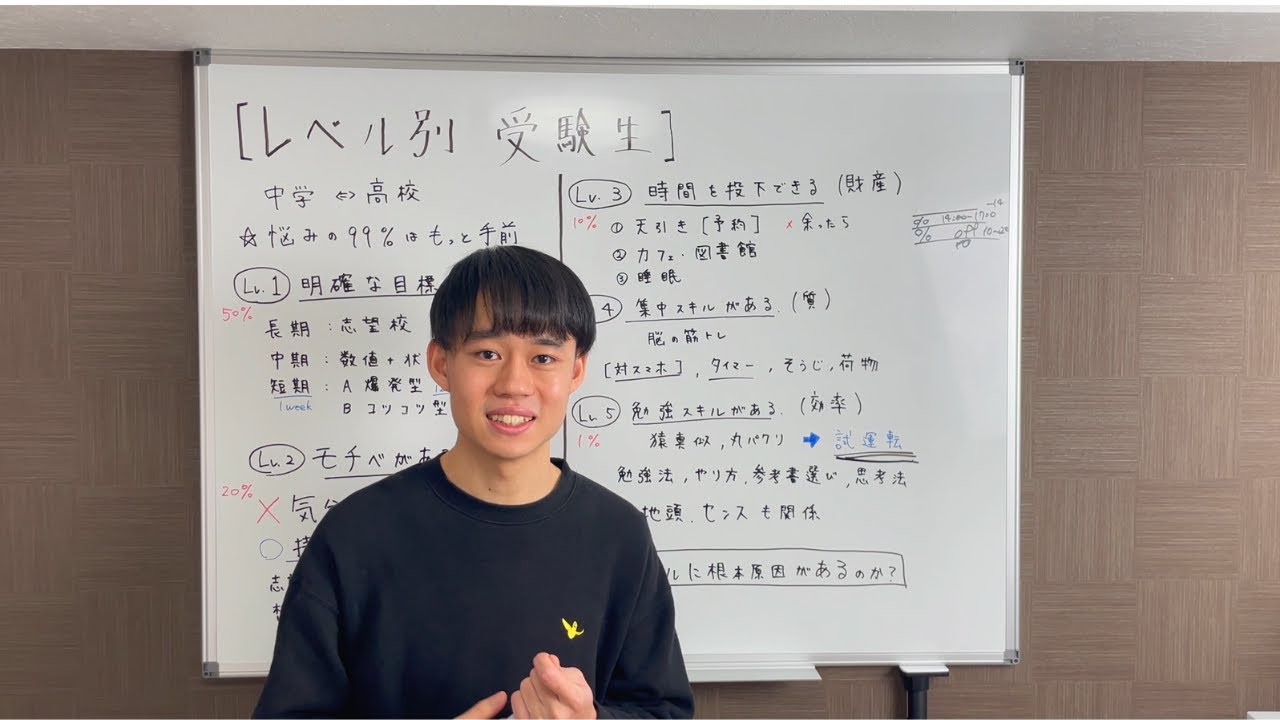 [レベル別 受験生]
中学 ⇔ 高校
☆悩みの99%はもっと手前
Lv.1 明確な目標
50%
長期：志望校
中期：数値+状
短期：A 爆発型
1week B コツコツ型
Lv.2 モチベがある
20%
× 気分
○
志
Lv.3 時間を投下できる(財産)
10% ① 天引き[予約] ×余ったら
② カフェ・図書館
③ 睡眠
4 集中スキルがある.(質)
脳の筋トレ
[対スマホ], タイマー, そうじ, 荷物
Lv.5 勉強スキルがある.(効率)
1% 猿真似, 丸パクリ → 試運転
勉強法, やり方, 参考書選び, 思考法
地頭. センスも関係
ルに根本原因があるのか?